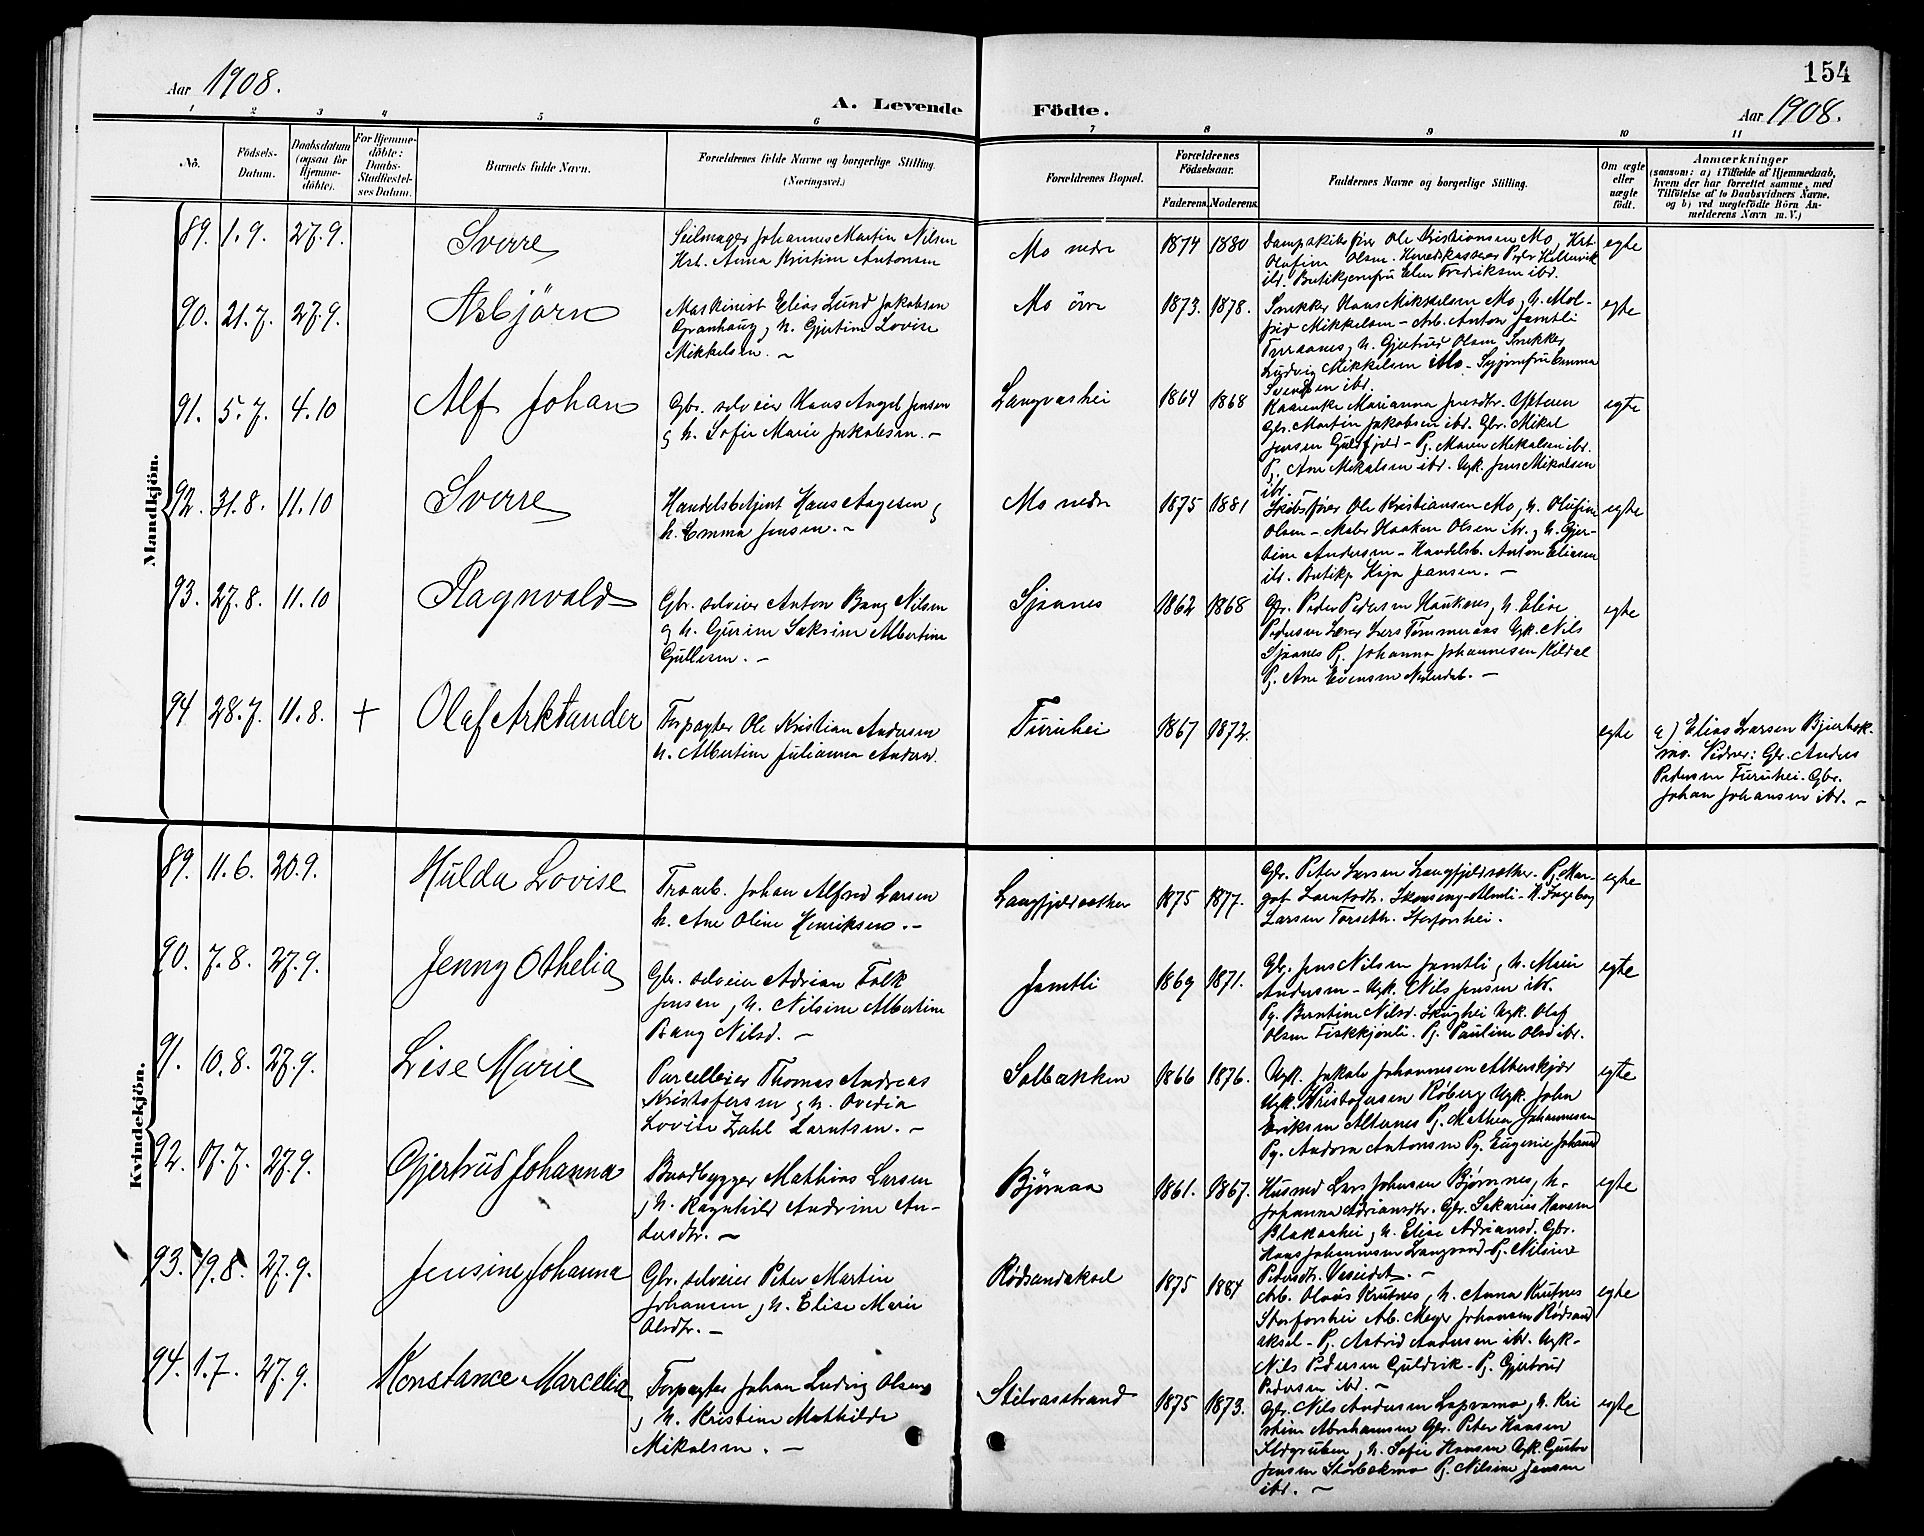 Aar 1908.
A. Levende Födte.
154
Aar 1908.
1 2 3 4 5 6 7 8 9 10 11
No.
Födsels-Datum.
Daabsdatum (ogsaa for Hjemme-döbte).
For Hjemme-döbte: Daabs-Stadfæstel-ses Datum.
Barnets fulde Navn.
Forældrenes fulde Navne og borgerlige Stilling. (Næringsvei.)
Forældrenes Bopæl.
Forældrenes Födselsaar.
Faderens. Moderens.
Faddernes Navne og borgerlige Stilling.
Om ægte eller uægte födt.
Anmærkninger
(saasom: a) i Tilfælde af Hjemmedaab,
hvem der har forrettet samme, med
Tilföielse af to Daabsvidners Navne,
og b) ved uægtefödte Börn An-
melderens Navn m. V.)
Mandkjön.
89. 1.9. 27.9. Sverre
Seilmager Johannes Martin Nilsen
Hst. Anna Kristine Antonsen
Mo nedre 1874 1880
Dampskibsfører Ole Kristiansen Mo, Hst.
Olufine Olsen. Herredskasserer Peder
ibd. Butikjomfru Elen Fredriksen ibd.
egte
90. 21.7. 27.9. Asbjörn
Maskinist Elias Lund Jakobsen
Granhaug, h. Gjertine Lovise
Mikkelsen. -
Mo övre 1873. 1878.
Snekker Hans Mikkelsen Mo, h. Mol-
frid Mikkelsen - Arb. Anton Jamtli
h. Gjertrud Olsen Snekker
Ludvig Mikkelsen Mo - Syjomfru Emma
Svendsen ibd.
egte
91. 5.7. 4.10 Alf Johan
Gbr. selveier Hans Angel Jensen
og h. Sofie Marie Jakobsen. -
Langvashei 1864 1868
Kaarenke Marianna Jensdtr.
Gbr. Martin Jakobsen ibd. Gbr. Mikal
Jensen Guldfjeld - Pg. Maren Mikalsen ibd.
Pg. Ane Mikalsen ibd. Ugk. Jens Mikalsen
ibd.
egte
92. 31.8. 11.10 Sverre
Handelsbetjent Hans Aagesen og
h. Emma Jensen. -
Mo nedre 1875 1881
Skibsfører Ole Kristiansen Mo, h. Olufine
Olsen - Maler Haakon Olsen ibd. og h. Gjer-
tine Andersen - Handelsb. Anton Eliasen
ibd. Butikp. Kaja Jansen. -
egte
93. 27.8. 11.10 Ragnvald
Gbr. selveier Anton Bang Nilsen
og h. Gurine Saksine Albertine
Gullesen. -
Sjaanes 1862 1868
Gbr. Peder Pedersen Haukenes, h. Elise
Pedersen Lærer Lars Tømmeraas Ugk. Nils
Sjaanes Pg. Johanna Johannesen Kildal
Pg. Ane Evensen Nederdal. -
egte
94 28.7. 11.8. + Olaf Arktander
Forpagter Ole Kristian Andersen
h. Albertine Julianna Andersd.
Furuhei 1867 1872.
egte
a) Elias Larsen Bjerkek-
mo. Vidner: Gbr. Andreas
Pedersen Furuhei. Gbr.
Johan Johansen ibd. -
Kvindekjön.
89. 11.6. 20.9. Hulda Lovise
Træarb. Johan Alfred Larsen
h. Ane Oline Henriksen. -
Langfjeldsæther 1875 1877.
Gbr. Peter Larsen Langfjeldsæther. Pg. Mar-
got Larntsdtr. Skonseng-Almli - K. Ingeborg
Larsen Forseth. Storforshei.
egte
90. 7.8. 27.9. Jenny Othelia
Gbr. selveier Adrian Falk
Jensen, h. Nilsine Albertine
Bang Nilsd. -
Jamtli 1869 1871.
Gbr. Jens Nilsen Jamtli, h. Marie
Andersen - Ugk. Nils Jensen ibd.
Pg. Berntine Nilsd. Skoghei Ugk. Olaf
Olsen Fiskkjønli. Pg. Pauline Olsd ibd.
egte
91. 10.8. 27.9. Lise Marie
Parcelleier Thomas Andreas
Kristofersen og h. Ovedia
Lovise Zahl Larntsen. -
Solbakken 1866 1876.
Ugk. Jakob Johannesen Alterskjær
Ugk. Kristofersen Røberg Ugk. John
Eriksen Altenes Pg. Mathea Johannesen
Pg. Andora Antonsen Pg. Eugenie Johansd
egte
92. 17.7. 27.9. Gjertrud Johanna
Baadbygger Mathias Larsen
, h. Ragnhild Andrine An-
dersdtr. -
Bjørnaa 1861. 1867.
Husmd Lars Johnsen Bjørnnes, h.
Johanna Adriansdtr. Gbr. Sakarias Hansen
Blakaahei, h. Elise Adriansd. Gbr.
Hans Johannesen Langvand Pg. Nilsine
Pedersdtr. Vaseidet. -
egte
93. 19.8. 27.9. Jensine Johanna
Gbr. selveier Peter Martin
Johansen, h. Elise Marie
Olsdtr. -
Rödsandaksel 1875 1884
Arb. Olaus Krutnes, h. Anna Krutnes
Storforshei Arb. Meyer Johansen Rødsand
aksel - Pg. Astrid Andersen ibd. Ugk.
Nils Pedersen Guldvik - Pg. Gjertrud
Pedersen ibd. -
egte
94. 1.7. 27.9. Konstance Marcelia
Forpagter Johan Ludvig Olsen
, h. Kristine Mathilde
Mikalsen. -
Stilvasstrand 1875 1873.
Gbr. Nils Andersen Lapvamo, h. Kri
stine Abrahamsen Gbr. Peter Hansen
Ildgruben, h. Sofie Hansen Ugk. Gustav
Jensen Storbakmo Pg. Nilsine Jensen
ibd. -
egte